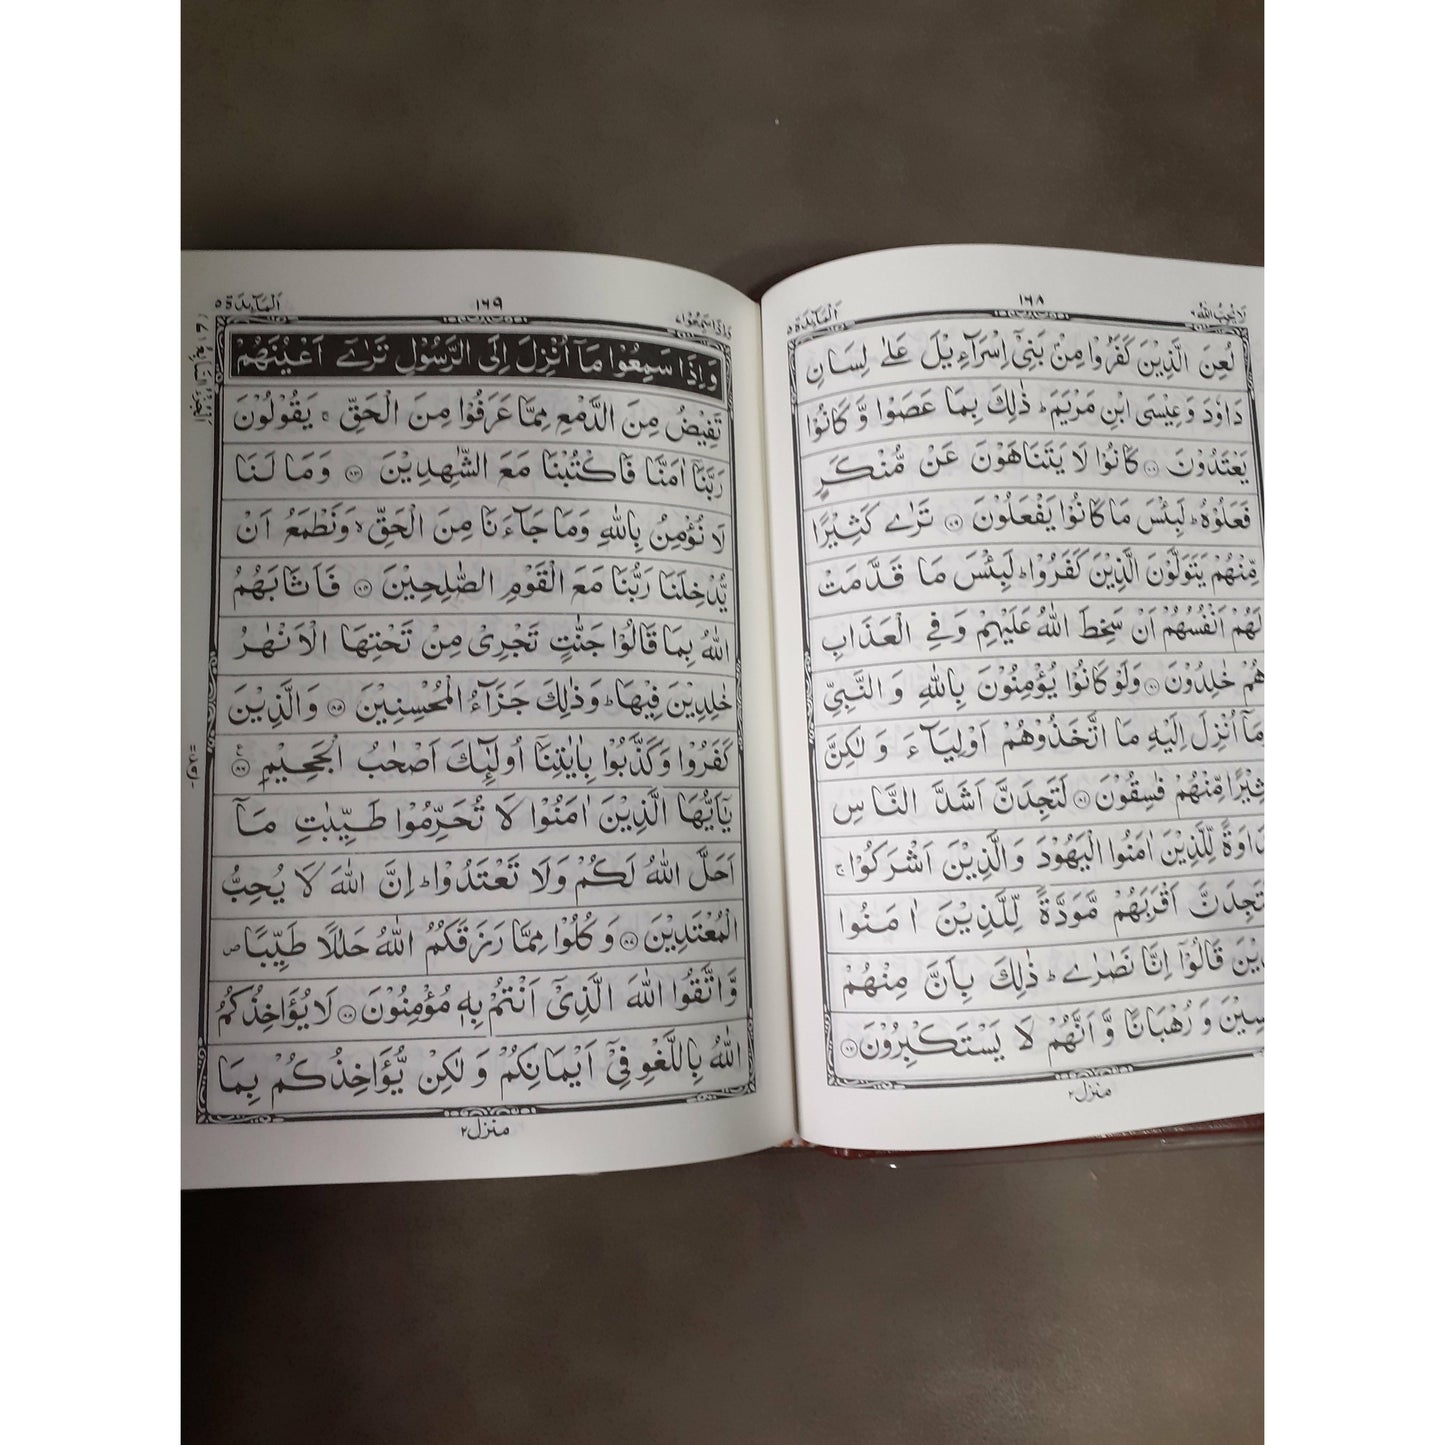 لَا يُحِبُّ اللّٰهُ ٦
١٦٨
اَلْمَآئِدَة ٥
لُعِنَ الَّذِيْنَ كَفَرُوْا مِنْۢ بَنِيْٓ اِسْرَآءِيْلَ عَلٰى لِسَانِ
دَاوٗدَ وَعِيْسَى ابْنِ مَرْيَمَ ؕ ذٰلِكَ بِمَا عَصَوْا وَّكَانُوْا
يَعْتَدُوْنَ ۝٧٨ كَانُوْا لَا يَتَنَاهَوْنَ عَنْ مُّنْكَرٍ
فَعَلُوْهُ ؕ لَبِئْسَ مَا كَانُوْا يَفْعَلُوْنَ ۝٧٩ تَرٰى كَثِيْرًا
مِّنْهُمْ يَتَوَلَّوْنَ الَّذِيْنَ كَفَرُوْا ؕ لَبِئْسَ مَا قَدَّمَتْ
لَهُمْ اَنْفُسُهُمْ اَنْ سَخِطَ اللّٰهُ عَلَيْهِمْ وَفِي الْعَذَابِ
هُمْ خٰلِدُوْنَ ۝٨٠ وَلَوْ كَانُوْا يُؤْمِنُوْنَ بِاللّٰهِ وَالنَّبِيِّ
مَآ اُنْزِلَ اِلَيْهِ مَا اتَّخَذُوْهُمْ اَوْلِيَآءَ وَلٰكِنَّ
مِّنْهُمْ فٰسِقُوْنَ ۝٨١ لَتَجِدَنَّ اَشَدَّ النَّاسِ
لِّلَّذِيْنَ اٰمَنُوا الْيَهُوْدَ وَالَّذِيْنَ اَشْرَكُوْا ۚ
اَقْرَبَهُمْ مَّوَدَّةً لِّلَّذِيْنَ اٰمَنُوا
قَالُوْٓا اِنَّا نَصٰرٰى ؕ ذٰلِكَ بِاَنَّ مِنْهُمْ
وَرُهْبَانًا وَّاَنَّهُمْ لَا يَسْتَكْبِرُوْنَ ۝٨٢
منزل ٢
وَاِذَا سَمِعُوْا ٧
١٦٩
اَلْمَآئِدَة ٥
وَاِذَا سَمِعُوْا مَآ اُنْزِلَ اِلَى الرَّسُوْلِ تَرٰٓى اَعْيُنَهُمْ
تَفِيْضُ مِنَ الدَّمْعِ مِمَّا عَرَفُوْا مِنَ الْحَقِّ ۚ يَقُوْلُوْنَ
رَبَّنَآ اٰمَنَّا فَاكْتُبْنَا مَعَ الشّٰهِدِيْنَ ۝٨٣ وَمَا لَنَا
لَا نُؤْمِنُ بِاللّٰهِ وَمَا جَآءَنَا مِنَ الْحَقِّ ۙ وَنَطْمَعُ اَنْ
يُّدْخِلَنَا رَبُّنَا مَعَ الْقَوْمِ الصّٰلِحِيْنَ ۝٨٤ فَاَثَابَهُمُ
اللّٰهُ بِمَا قَالُوْا جَنّٰتٍ تَجْرِيْ مِنْ تَحْتِهَا الْاَنْهٰرُ
خٰلِدِيْنَ فِيْهَا ؕ وَذٰلِكَ جَزَآءُ الْمُحْسِنِيْنَ ۝٨٥ وَالَّذِيْنَ
كَفَرُوْا وَكَذَّبُوْا بِاٰيٰتِنَآ اُولٰٓئِكَ اَصْحٰبُ الْجَحِيْمِ ۝٨٦
يٰٓاَيُّهَا الَّذِيْنَ اٰمَنُوْا لَا تُحَرِّمُوْا طَيِّبٰتِ مَآ
اَحَلَّ اللّٰهُ لَكُمْ وَلَا تَعْتَدُوْا ؕ اِنَّ اللّٰهَ لَا يُحِبُّ
الْمُعْتَدِيْنَ ۝٨٧ وَكُلُوْا مِمَّا رَزَقَكُمُ اللّٰهُ حَلٰلًا طَيِّبًا ۪
وَّاتَّقُوا اللّٰهَ الَّذِيْٓ اَنْتُمْ بِهٖ مُؤْمِنُوْنَ ۝٨٨ لَا يُؤَاخِذُكُمُ
اللّٰهُ بِاللَّغْوِ فِيْٓ اَيْمَانِكُمْ وَلٰكِنْ يُّؤَاخِذُكُمْ بِمَا
منزل ٢